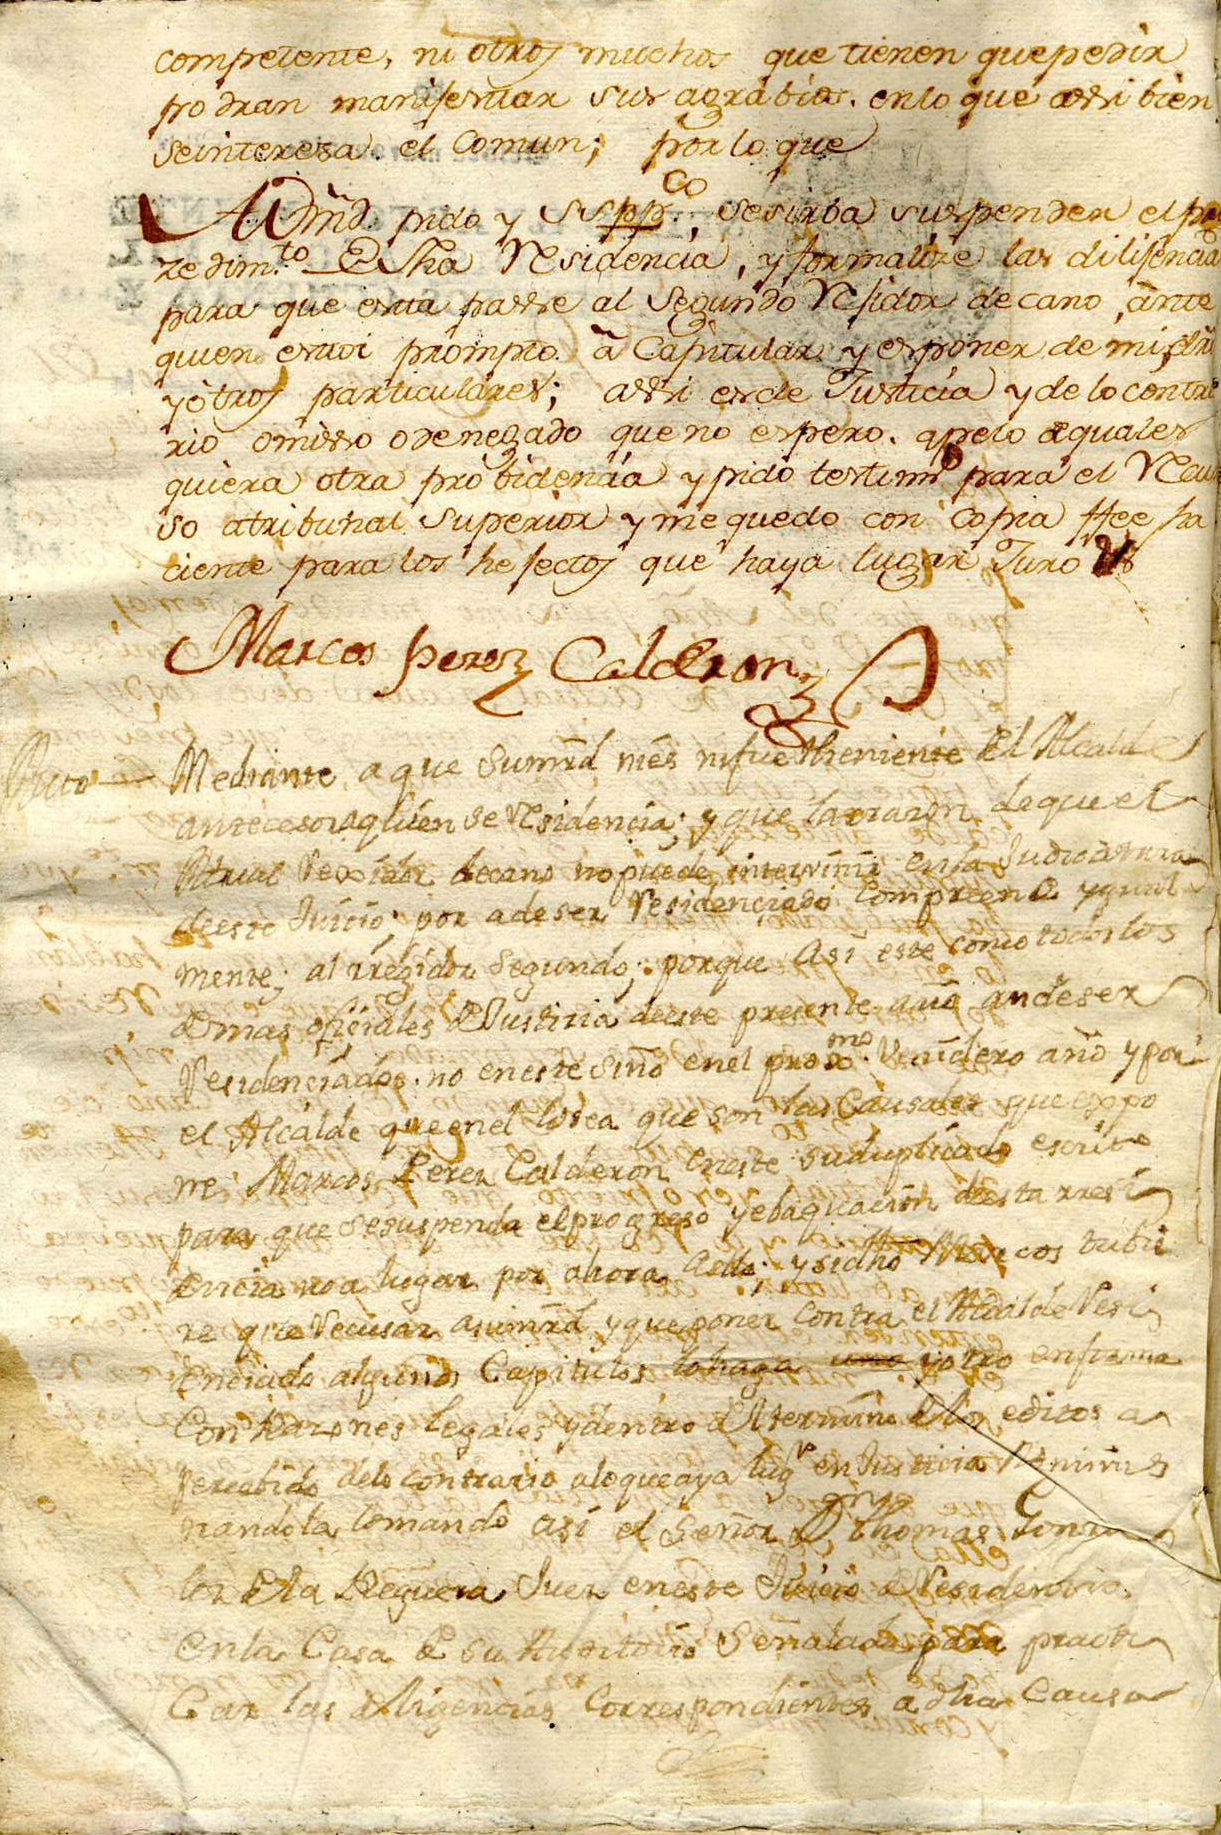 competente, ni otros muchos que tienen que pedir
podran manifestar sus agrabios. en lo que assi bien
se interesa el Comun; por lo que
A Vmd. pido y supp.co se sirba suspender el pro
zedim.to de dha Residencia, y formalize las dilijencias
para que esta passe al Segundo Rejidor decano, ante
quien estoi prompto â Capitular y esponer de mi dro
y otros particulares; assi es de Justicia y de lo contra
rio omisso o denegado que no espero. apelo a quales
quiera otra probidencia y pido testim.o para el Recur
so a tribunal Superior y me quedo con Copia ffee ha
ciente para los hefectos que haya lugar Juro &
Marcos perez Calderon
Auto Mediante a que su mrd. no es ni fue theniente del Alcalde
antecesor a quien se Residencia; y que la rrazon de que el
Actual Rexidor decano no puede intervinir en la Judicatura
de este Juicio por a de ser Residenciado Comprende ygual
mente; al rregidor Segundo; porque Asi este como todos los
demas ofiziales de Justicia de este presente año an de ser
Residenciados. no en este sino en el proximo. Venidero año y por
el Alcalde que en el lo sea que son las Causales que expo
ne Marcos Perez Calderon en este su duplicado escrito
para que se suspenda el progreso y ebaquacion de esta rresi
dencia no a lugar por ahora a ello. y si dho Marcos tubie
re que Recusar a su mrd. y que poner Contra el Alcalde Resi
denciado algunos Capitulos lo haga uno y otro en forma
Con Razones legales y dentro del termino de los edictos a
percebido de lo contrario a lo que aya lug.r en Justicia
nandola lo mando asi el Señor Dn Thomas Gonza
lez de la Reguera Juez en este Juicio de Residencia
en la Casa de su Auditorio Señalada para practi
Car las diligencias Correspondientes a dha Causa